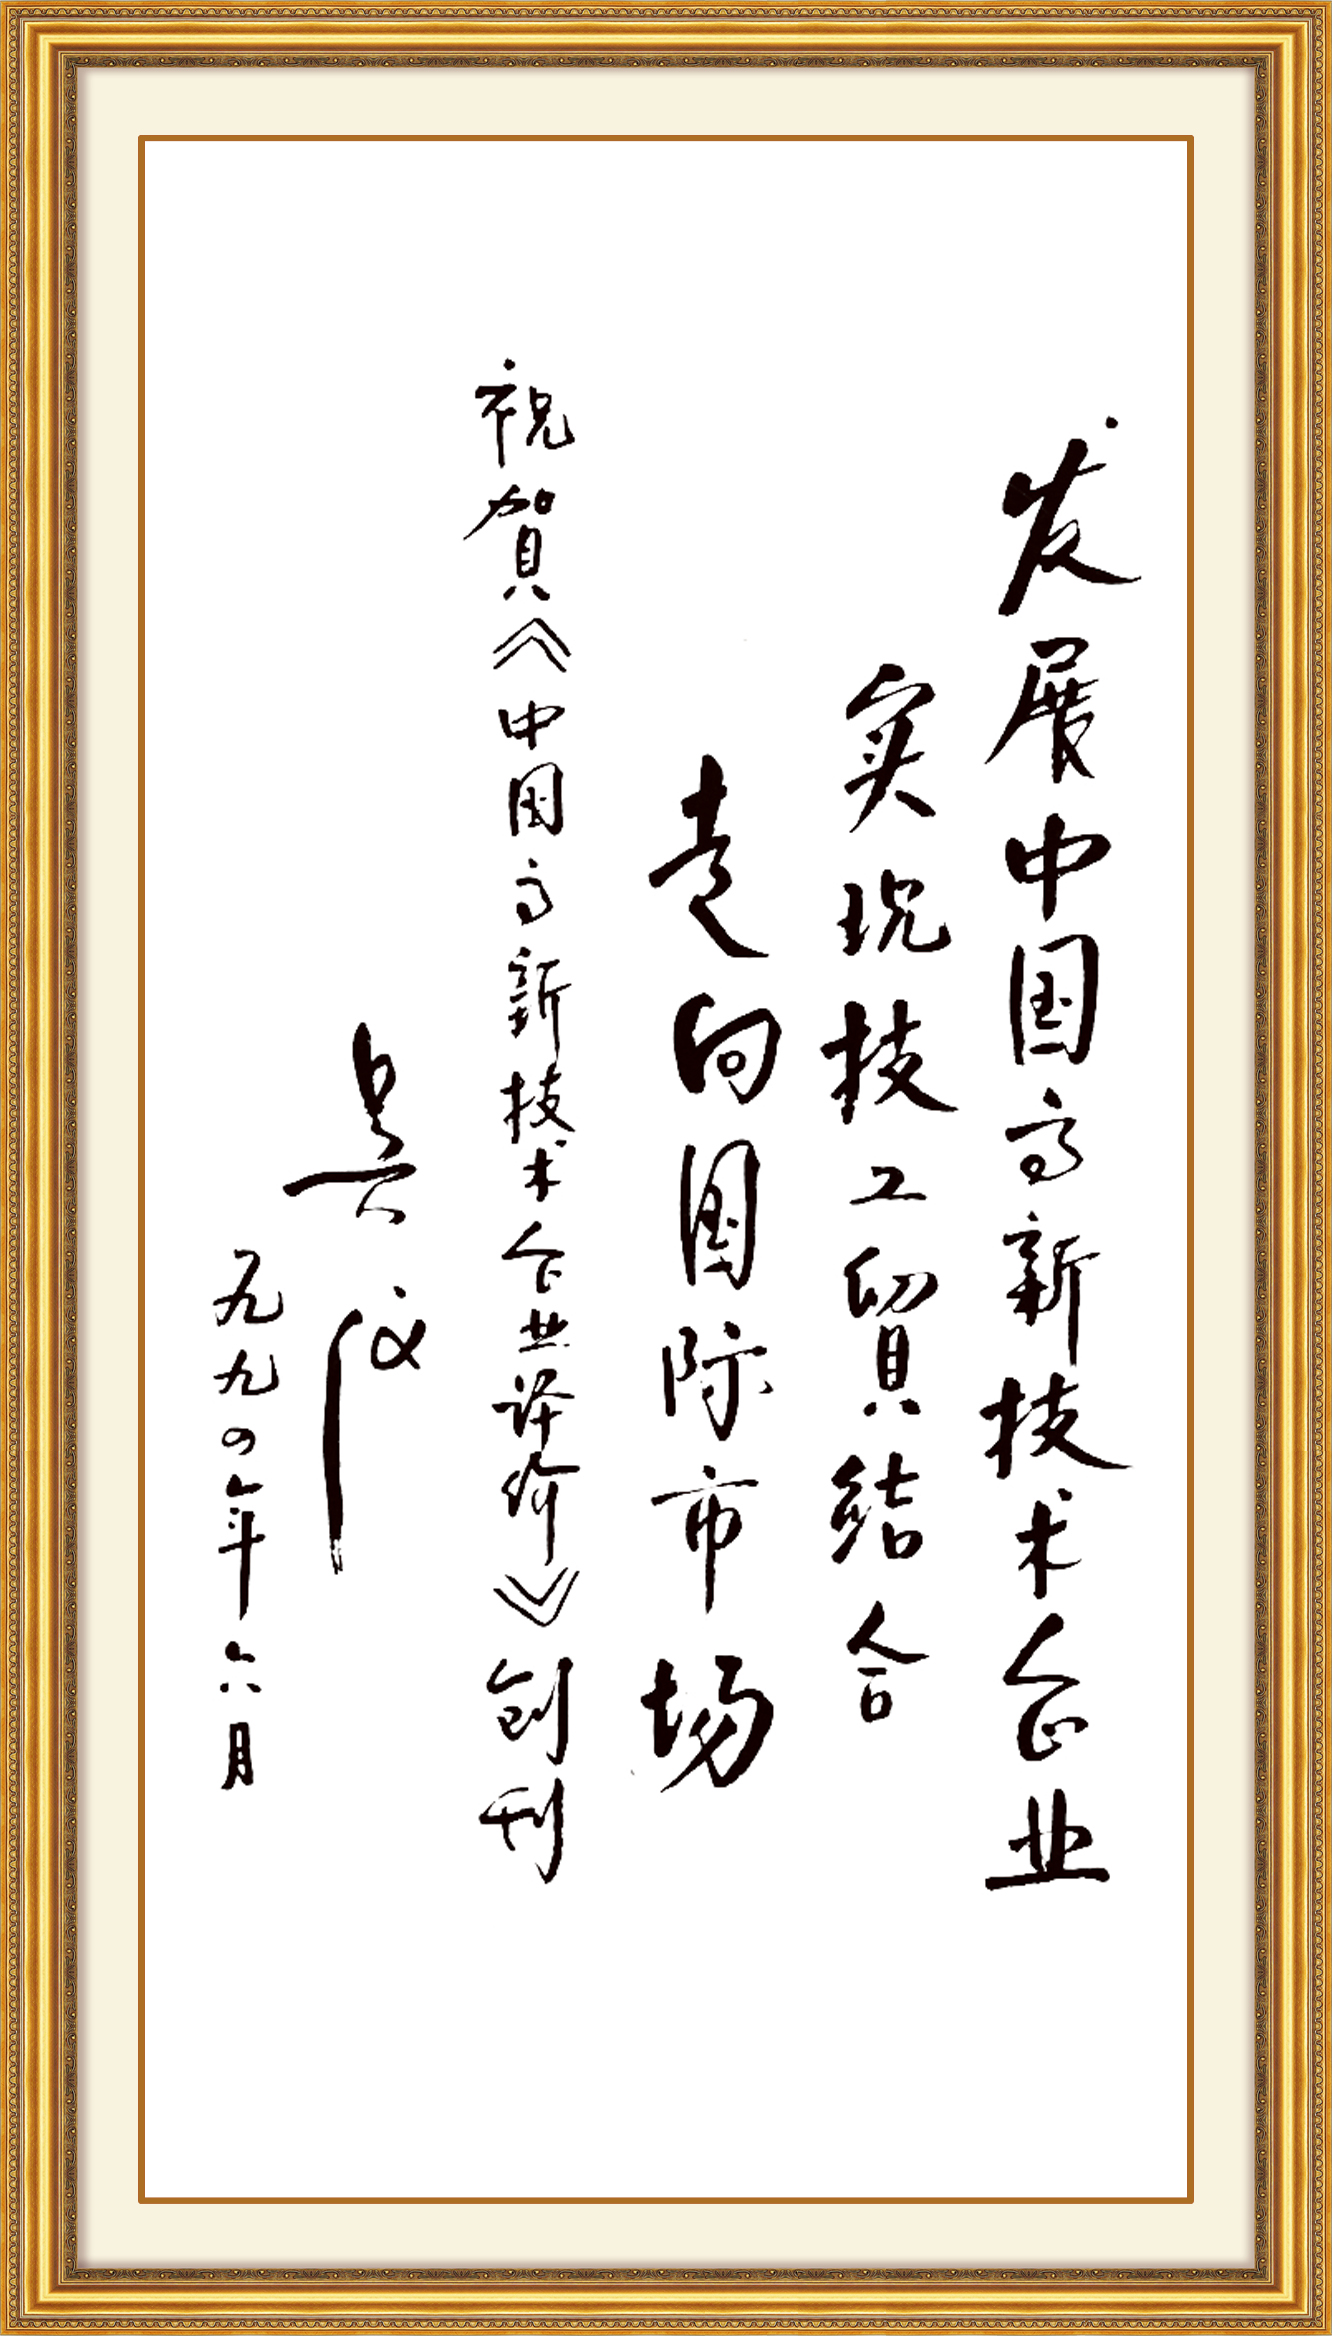 发展中国高新技术企业
实现技工贸结合
走向国际市场
祝賀《中国高新技术企业评价》创刊
吴仪
一九九四年六月